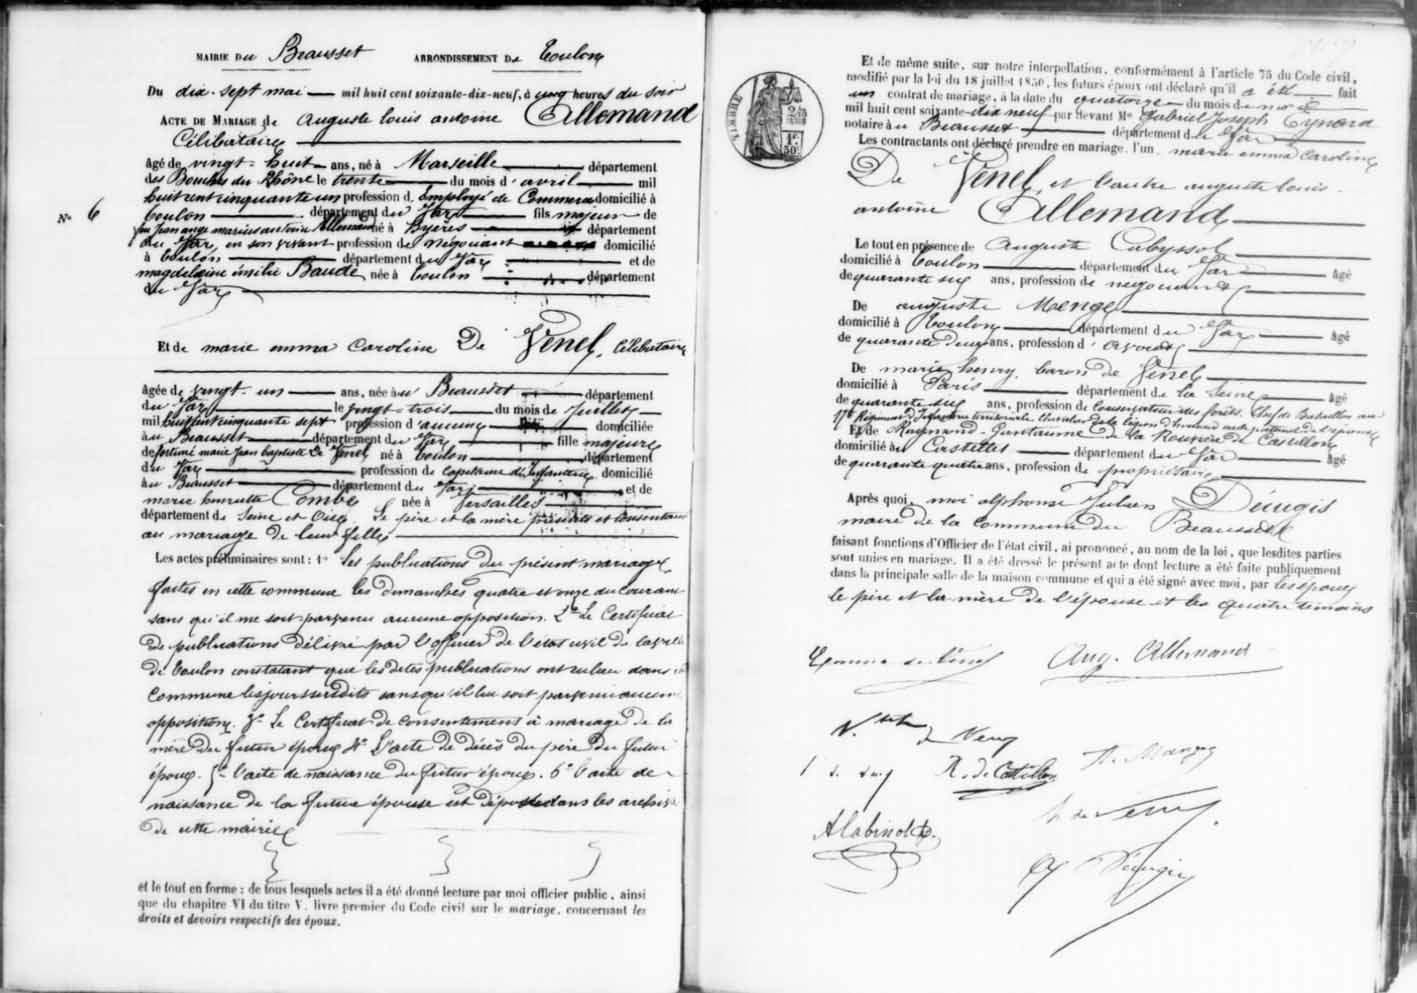 MAIRIE DU Beausset ARRONDISSEMENT DE Toulon
Du dix-sept mai mil huit cent soixante-dix-neuf, à cinq heures du soir
ACTE DE MARIAGE de auguste louis antoine Allemand
Célibataire
âgé de vingt-huit ans, né à Marseille département
des Bouches du Rhône le trente du mois d'avril mil
huit cent cinquante un profession d'Employé de Commerce domicilié à
No 6
toulon département du Var fils majeur de
feu Jean ange marius antoine Allemand né à Hyères département
du Var, en son vivant profession de négociant domicilié
à toulon département du Var et de
magdelaine émilie Baude née à toulon département
du Var
Et de marie emma Caroline De Venel, Célibataire
âgée de vingt-un ans, née au Beausset département
du Var le vingt-trois du mois de Juillet
mil huit cent cinquante sept profession d'aucune domiciliée
au Beausset département du Var fille majeure
de fortuné marie Jean baptiste De Venel né à toulon département
du Var profession de Capitaine d'Infanterie domicilié
au Beausset département du Var et de
marie henriette Combe née à Versailles
département de Seine et Oise Le père et la mère présents et Consentans
au mariage de leur fille
Les actes préliminaires sont : 1° les publications du présent mariage,
faites en cette commune les dimanches quatre et onze du courant
sans qu'il me soit parvenu aucune opposition. 2° Le Certificat
de publications délivré par l'officier de l'état civil de la ville
de toulon constatant que les dites publications ont eu lieu dans
Commune les jours susdits sans qu'il lui soit parvenu aucune
opposition. 3° Le Certificat de Consentement à mariage de la
mère du futur époux 4° L'acte de décès du père du futur
époux. 5° l'acte de naissance du futur époux. 6° l'acte de
naissance de la future épouse est déposé dans les archives
de cette mairie
et le tout en forme : de tous lesquels actes il a été donné lecture par moi officier public, ainsi
que du chapitre VI du titre V, livre premier du Code civil sur le mariage, concernant les
droits et devoirs respectifs des époux.
TIMBRE
Et de même suite, sur notre interpellation, conformément à l'article 75 du Code civil,
modifié par la loi du 18 juillet 1850, les futurs époux ont déclaré qu'il a été fait
un contrat de mariage, à la date du quatorze du mois de mai
mil huit cent soixante-dix neuf par devant Me Gabriel Joseph Eynard
notaire au Beausset département du Var
Les contractants ont déclaré prendre en mariage, l'un, marie emma Caroline
De Venel, et l'autre auguste louis
antoine Allemand
Le tout en présence de Auguste
domicilié à toulon département du Var âgé
de quarante six ans, profession de négociant
De auguste Menge
domicilié à toulon département du Var âgé
de quarante deux ans, profession d'avocat
De marie henry, baron de Venel
domicilié à Paris département de la Seine âgé
de quarante six ans, profession de Conservateur des forêts. Chef de Bataillon au
Et de Raymond-Guillaume de la Rouvière de Castillon
domicilié au Castellet département du Var âgé
de quarante quatre ans, profession de propriétaire
Après quoi, moi alphonse Julien Décugis
maire de la Commune du Beausset
faisant fonctions d'Officier de l'état civil, ai prononcé, au nom de la loi, que lesdites parties
sont unies en mariage. Il a été dressé le présent acte dont lecture a été faite publiquement
dans la principale salle de la maison commune et qui a été signé avec moi, par les époux
le père et la mère de l'épouse et les quatre témoins
Emma de Venel Aug. Allemand
de Venel
R. de Castillon
A. Menge
h de Venel
A Décugis